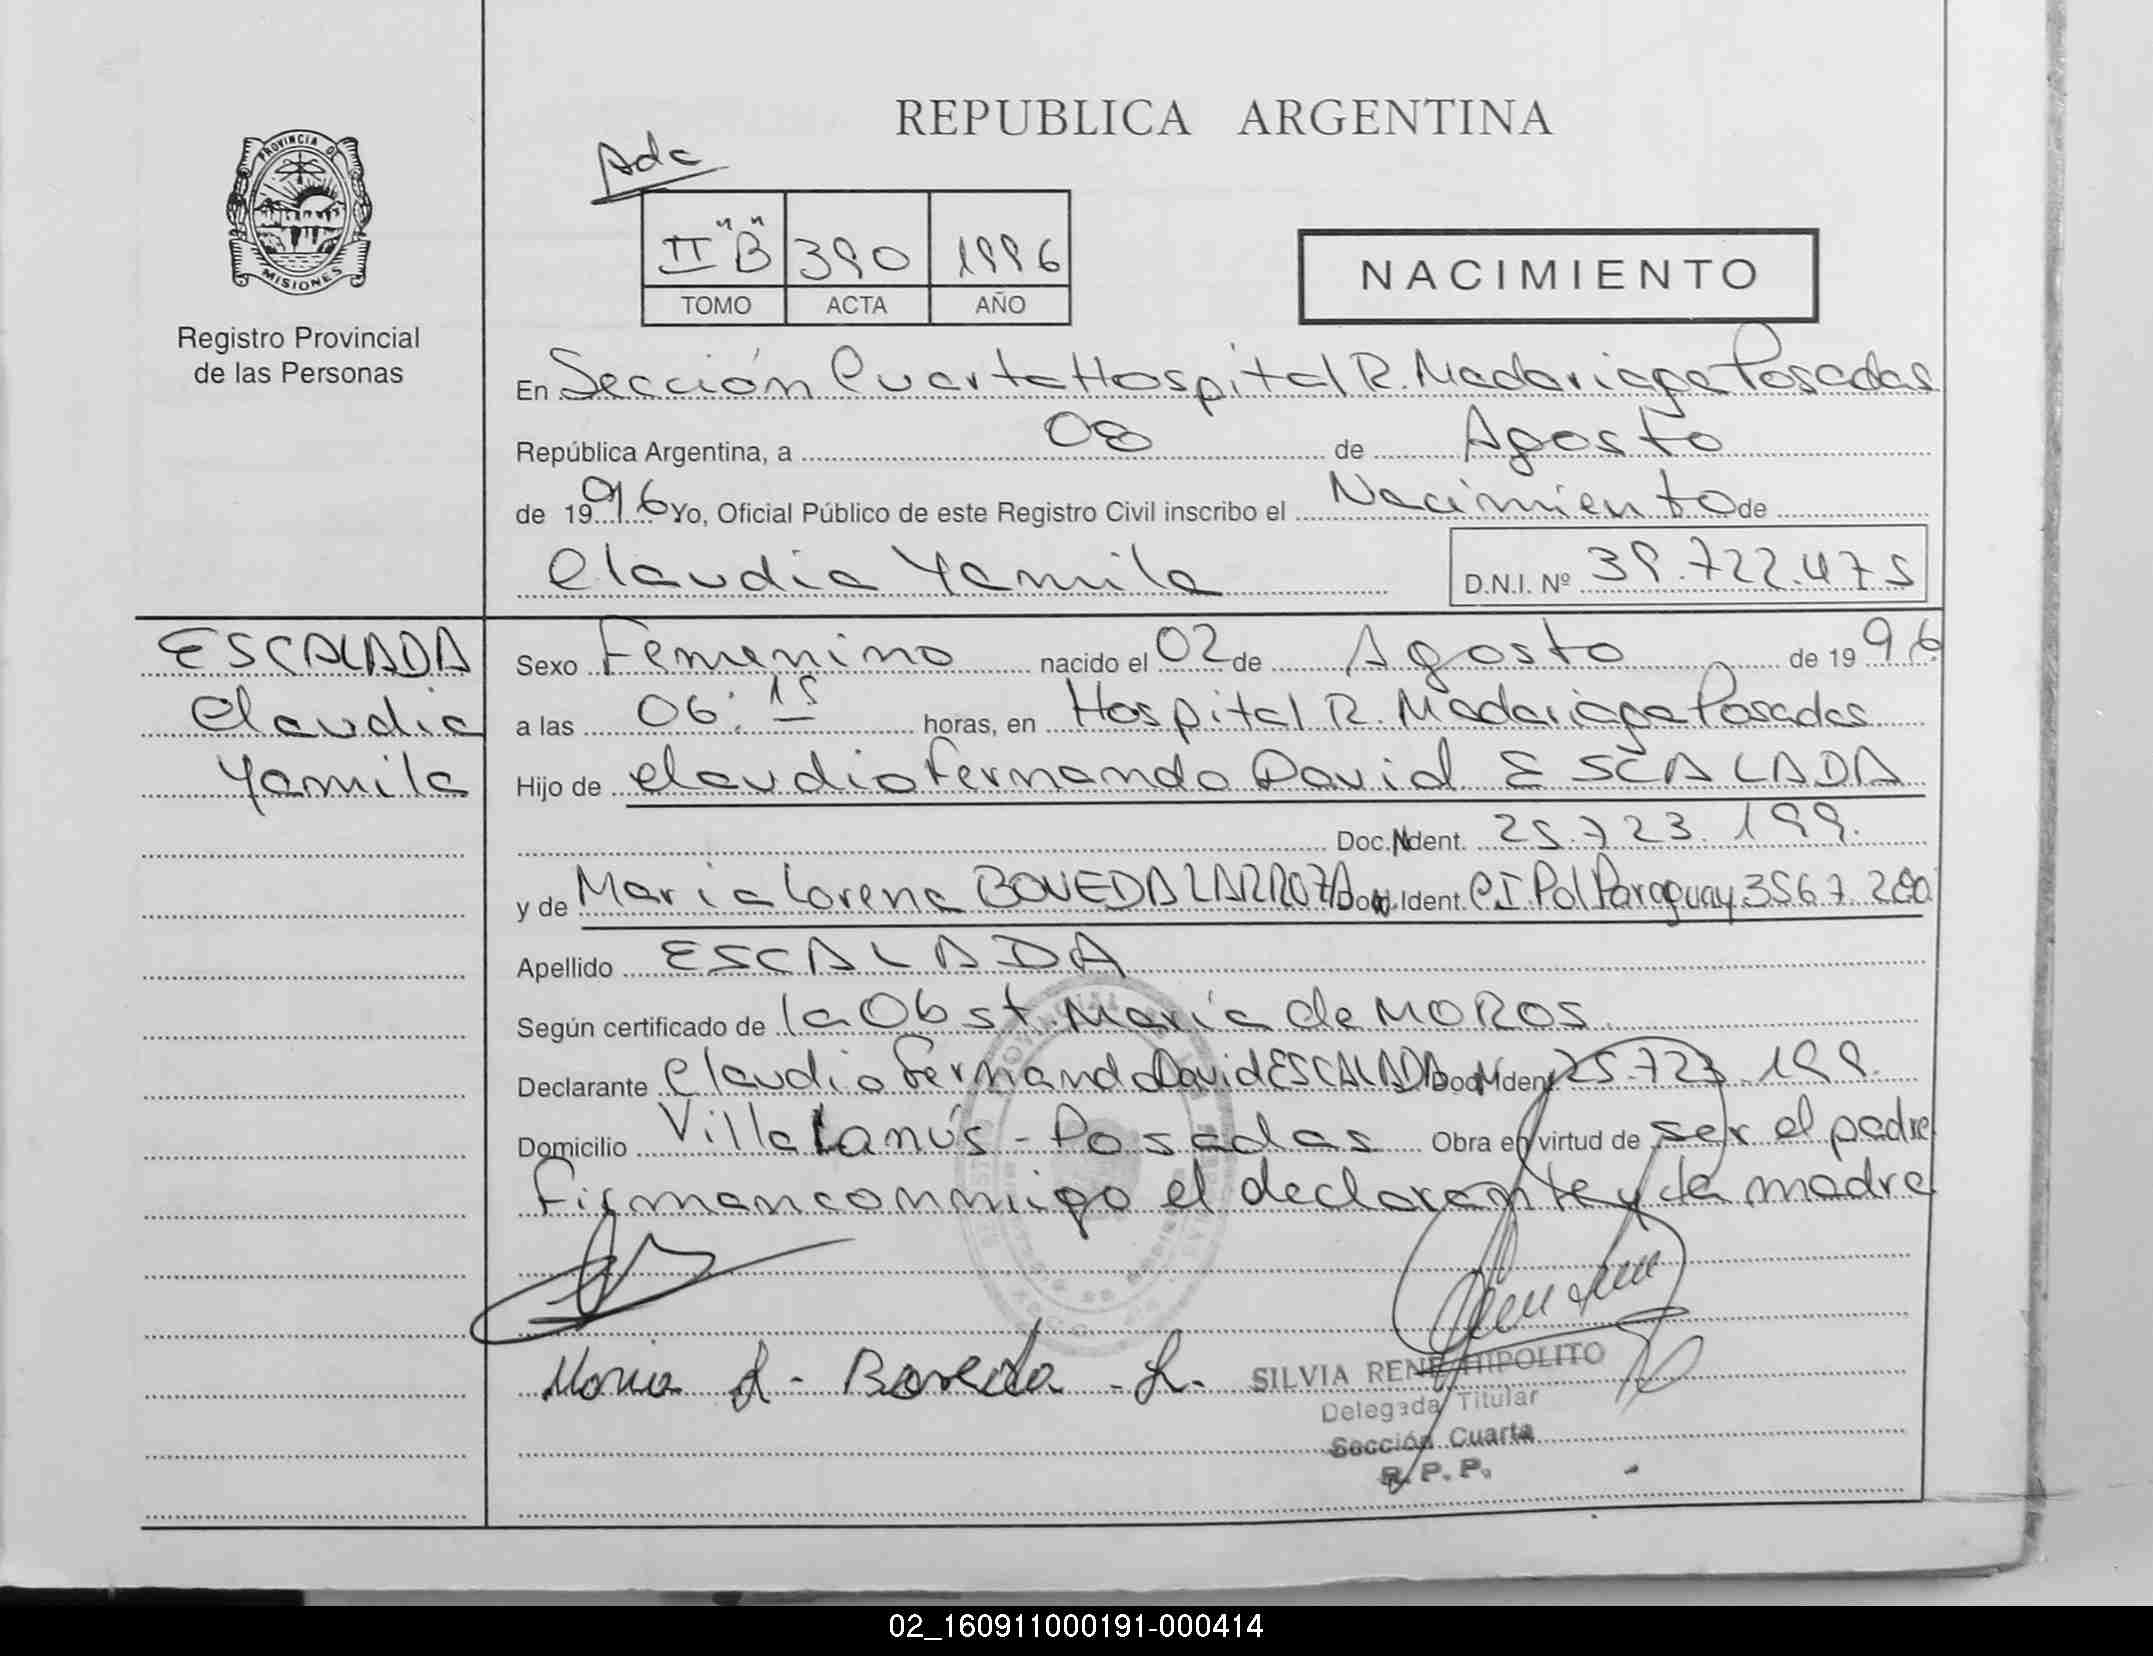 REPUBLICA ARGENTINA
PROVINCIA DE
MISIONES
Registro Provincial
de las Personas
II "B" 390 1996
TOMO ACTA AÑO
NACIMIENTO
En Sección Cuarta Hospital R. Madariaga Posadas
República Argentina, a 08 de Agosto
de 1996 Yo, Oficial Público de este Registro Civil inscribo el Nacimiento de
Claudia Yamila D.N.I. Nº 39.722.475
ESCALADA
Claudia
Yamila
Sexo Femenino nacido el 02 de Agosto de 1996
a las 06:15 horas, en Hospital R. Madariaga Posadas
Hijo de Claudio Fernando David ESCALADA
Doc. Ident. 25.723.199.
y de Maria Lorena BOVEDA LARROZA Doc. Ident. C.I. Pol Paraguay 3567.280
Apellido ESCALADA
Según certificado de la Obst. María de MOROS
Declarante Claudio Fernando David ESCALADA Doc. Ident. 25.723.199.
Domicilio Villa Lanús - Posadas Obra en virtud de ser el padre
Firman conmigo el declarante y la madre
Maria L. Boveda L.
SILVIA RENE HIPOLITO
Delegada Titular
Sección Cuarta
R. P. P.
02_160911000191-000414